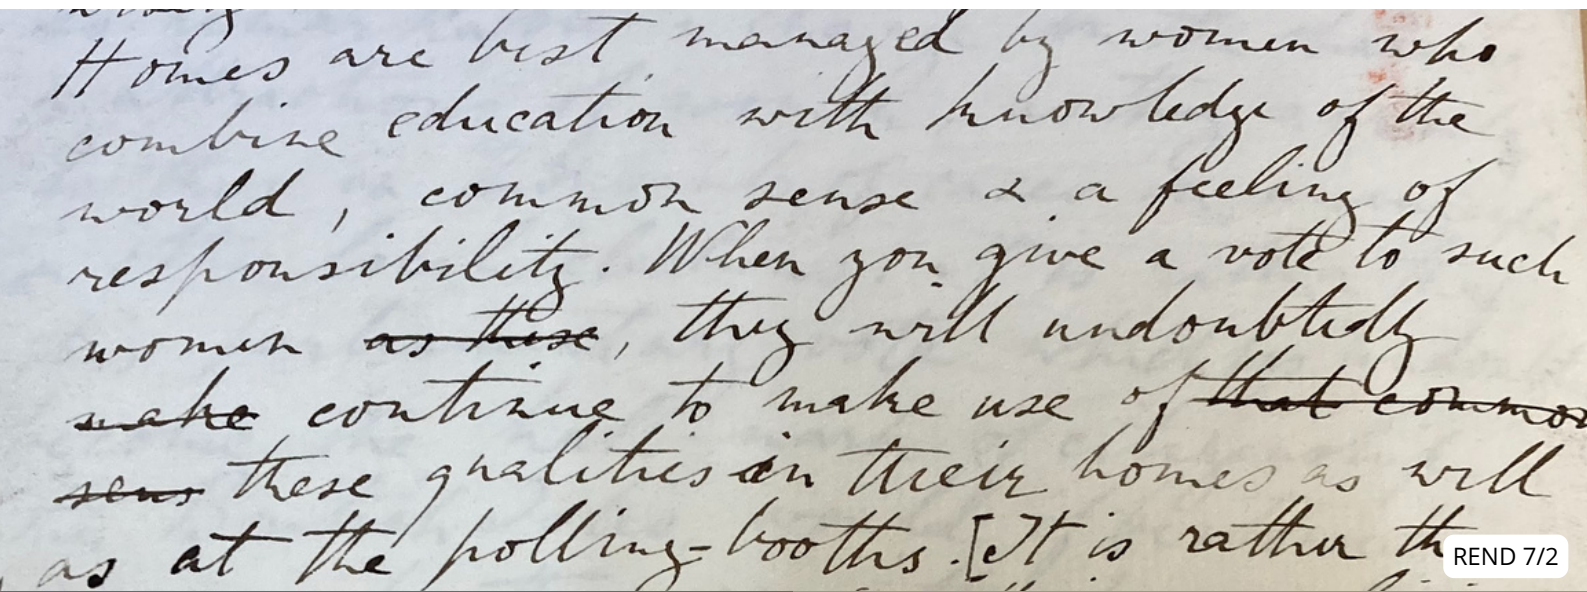 Homes are best managed by women who
combine education with knowledge of the
world, common sense & a feeling of
responsibility. When you give a vote to such
women as these, they will undoubtedly
make continue to make use of that common
sens these qualities in their homes as will
as at the polling-booths. [It is rather
REND 7/2